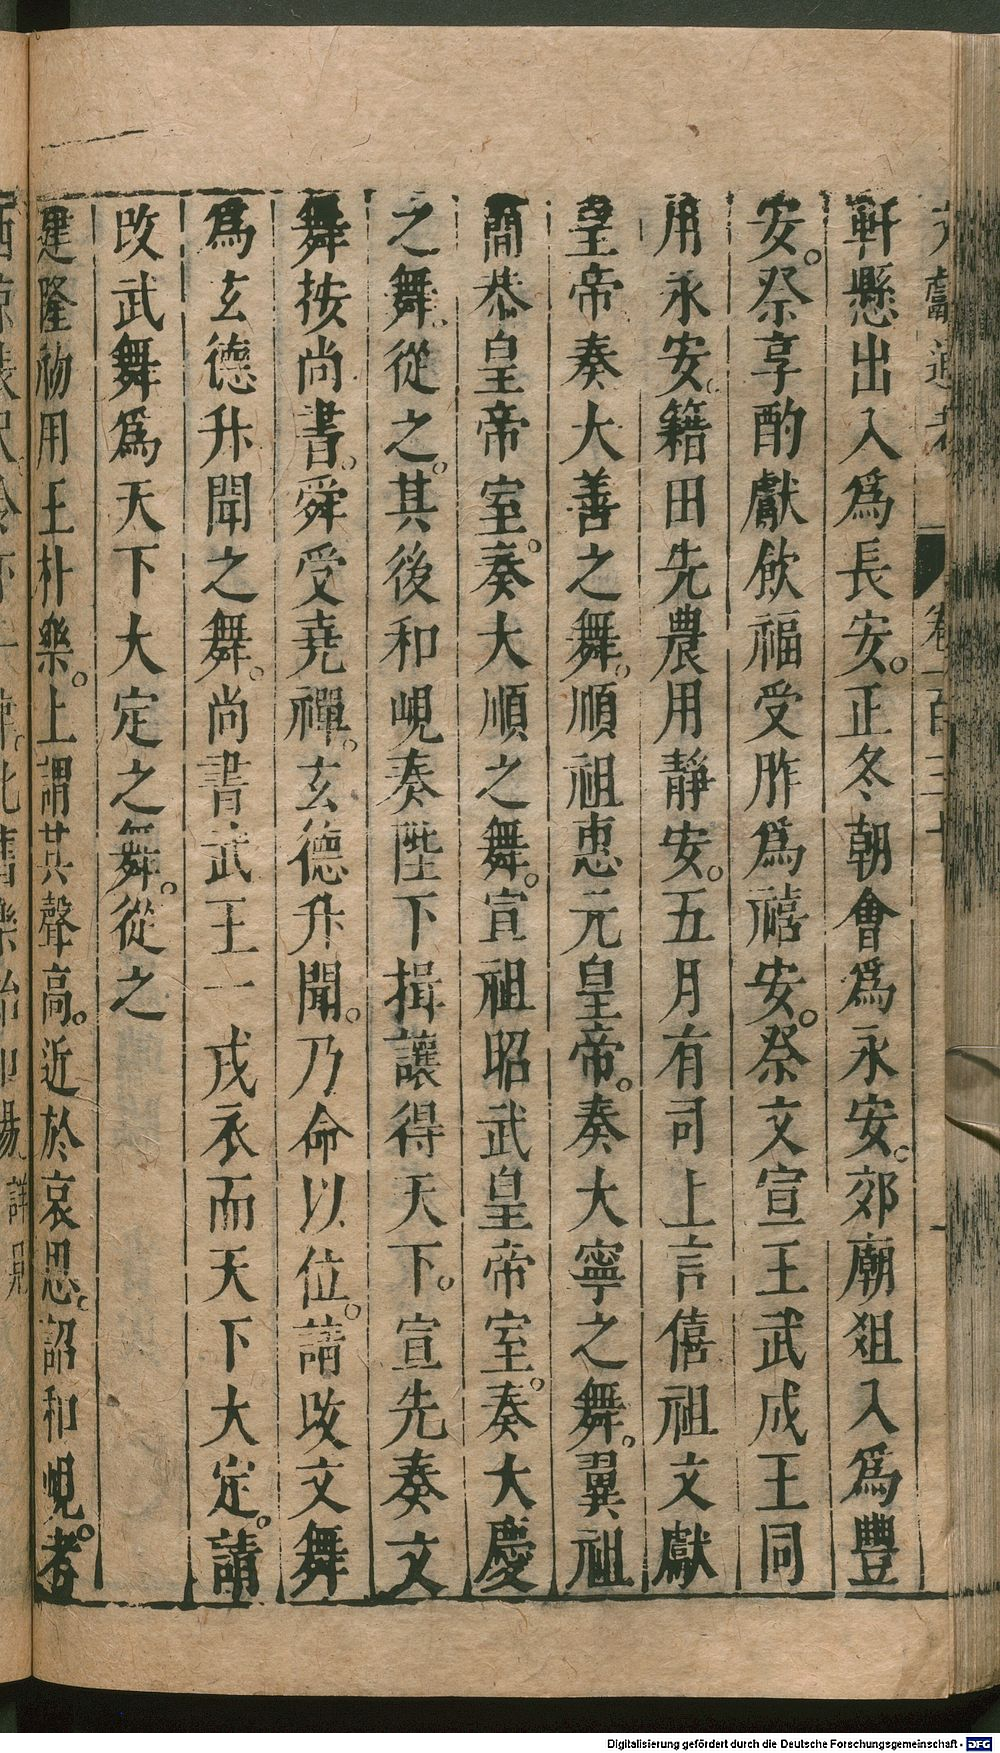 軒懸出入爲長安。正冬朝會爲永安。郊廟俎入爲豐
安。祭享酌獻飲福受胙爲禧安。祭文宣王武成王同
用永安。籍田先農用靜安。五月有司上言僖祖文獻
皇帝奏大善之舞。順祖惠元皇帝。奏大寧之舞。翼祖
簡恭皇帝室。奏大順之舞。宣祖昭武皇帝室。奏大慶
之舞。從之。其後和峴奏陛下揖讓得天下。宣先奏文
舞按尚書。舜受堯禪。玄德升聞。乃命以位。請改文舞
爲玄德升聞之舞。尚書武王一戎衣而天下大定。請
改武舞爲天下大定之舞。從之
建隆初用王朴樂。上謂其聲高。近於哀思。詔和峴。考
Digitalisierung gefördert durch die Deutsche Forschungsgemeinschaft - DFG